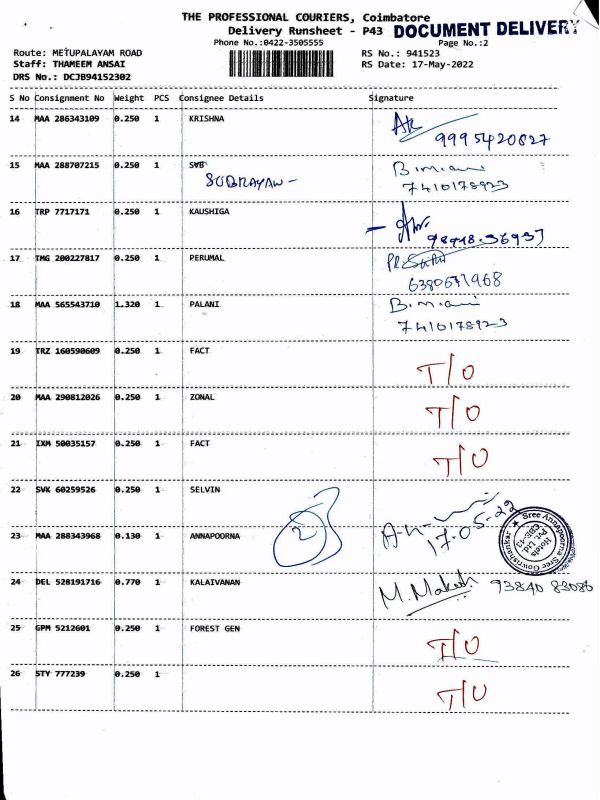 THE PROFESSIONAL COURIERS, Coimbatore
Delivery Runsheet - P43 DOCUMENT DELIVERY
Phone No.:0422-3505555 Page No.:2
Route: METUPALAYAM ROAD RS No.: 941523
Staff: THAMEEM ANSAI RS Date: 17-May-2022
DRS No.: DCJB94152302
S No Consignment No Weight PCS Consignee Details Signature
14 MAA 286343109 0.250 1 KRISHNA
9995420827
15 MAA 288707215 0.250 1 SVB B.m.ani
SUBRAYAN - 7410178923
16 TRP 7717171 0.250 1 KAUSHIGA
98948.36937
17 TMG 200227817 0.250 1 PERUMAL
6380671968
18 MAA 565543710 1.320 1 PALANI B.m.ani
7410178923
19 TRZ 160590609 0.250 1 FACT T/O
20 MAA 290812026 0.250 1 ZONAL T/O
21 IXM 50035157 0.250 1 FACT T/O
22 SVK 60259526 0.250 1 SELVIN
23 MAA 288343968 0.130 1 ANNAPOORNA 2 17-05-22
Sree Annapoorna Sree Gowrishankar Hotels Pvt. Ltd. CBE-43
24 DEL 528191716 0.770 1 KALAIVANAN M. Makesh 93840 83086
25 GPM 5212601 0.250 1 FOREST GEN T/O
26 STY 777239 0.250 1 T/O